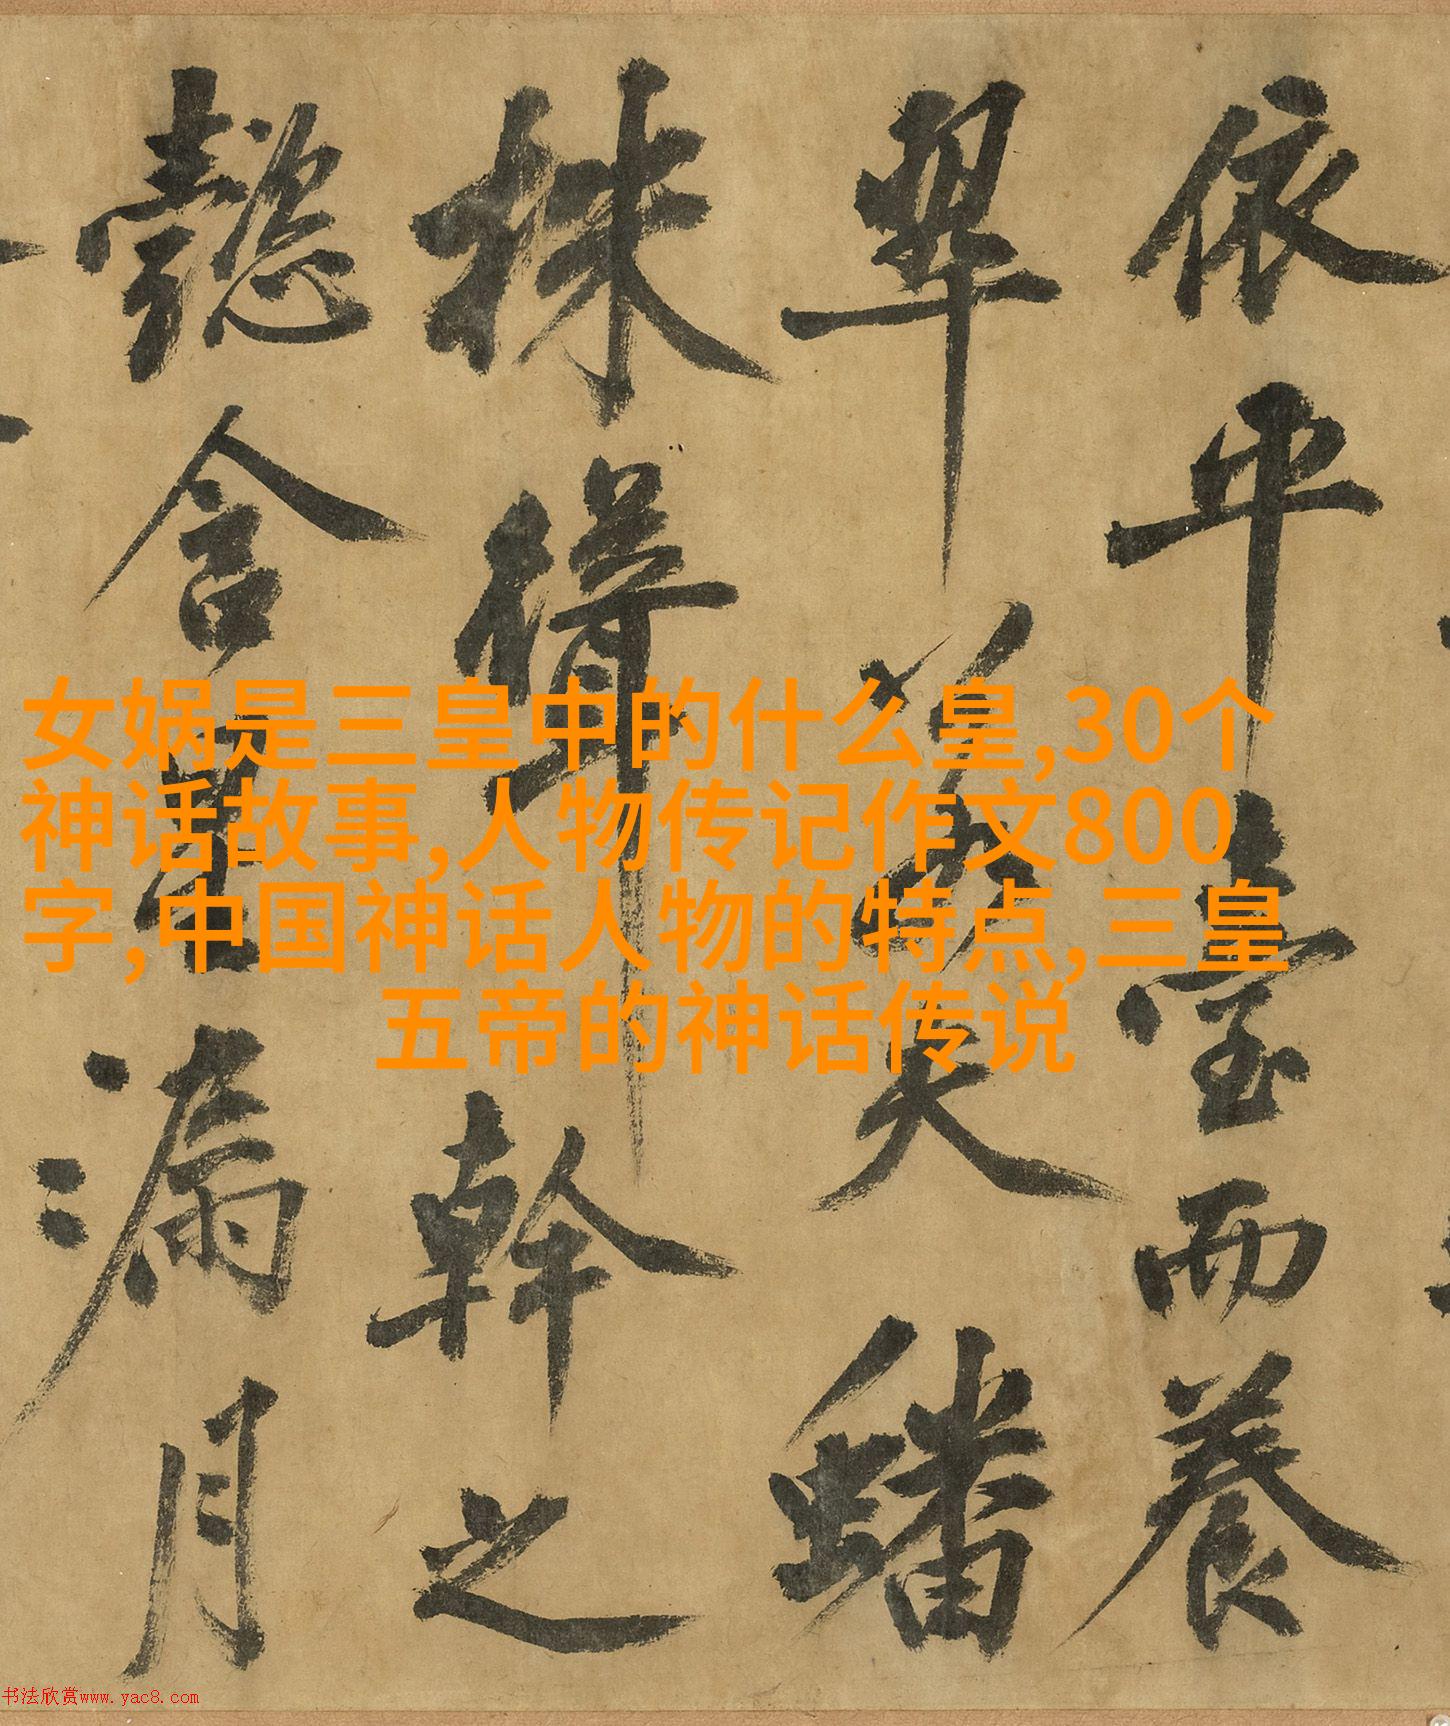 依平臺而養
翠若夫蟠
株聳幹之
懿含星漏月
女娲是三皇中的什么皇,30个
神话故事,人物传记作文800
字,中国神话人物的特点,三皇
五帝的神话传说
书法欣赏www.yac8.com